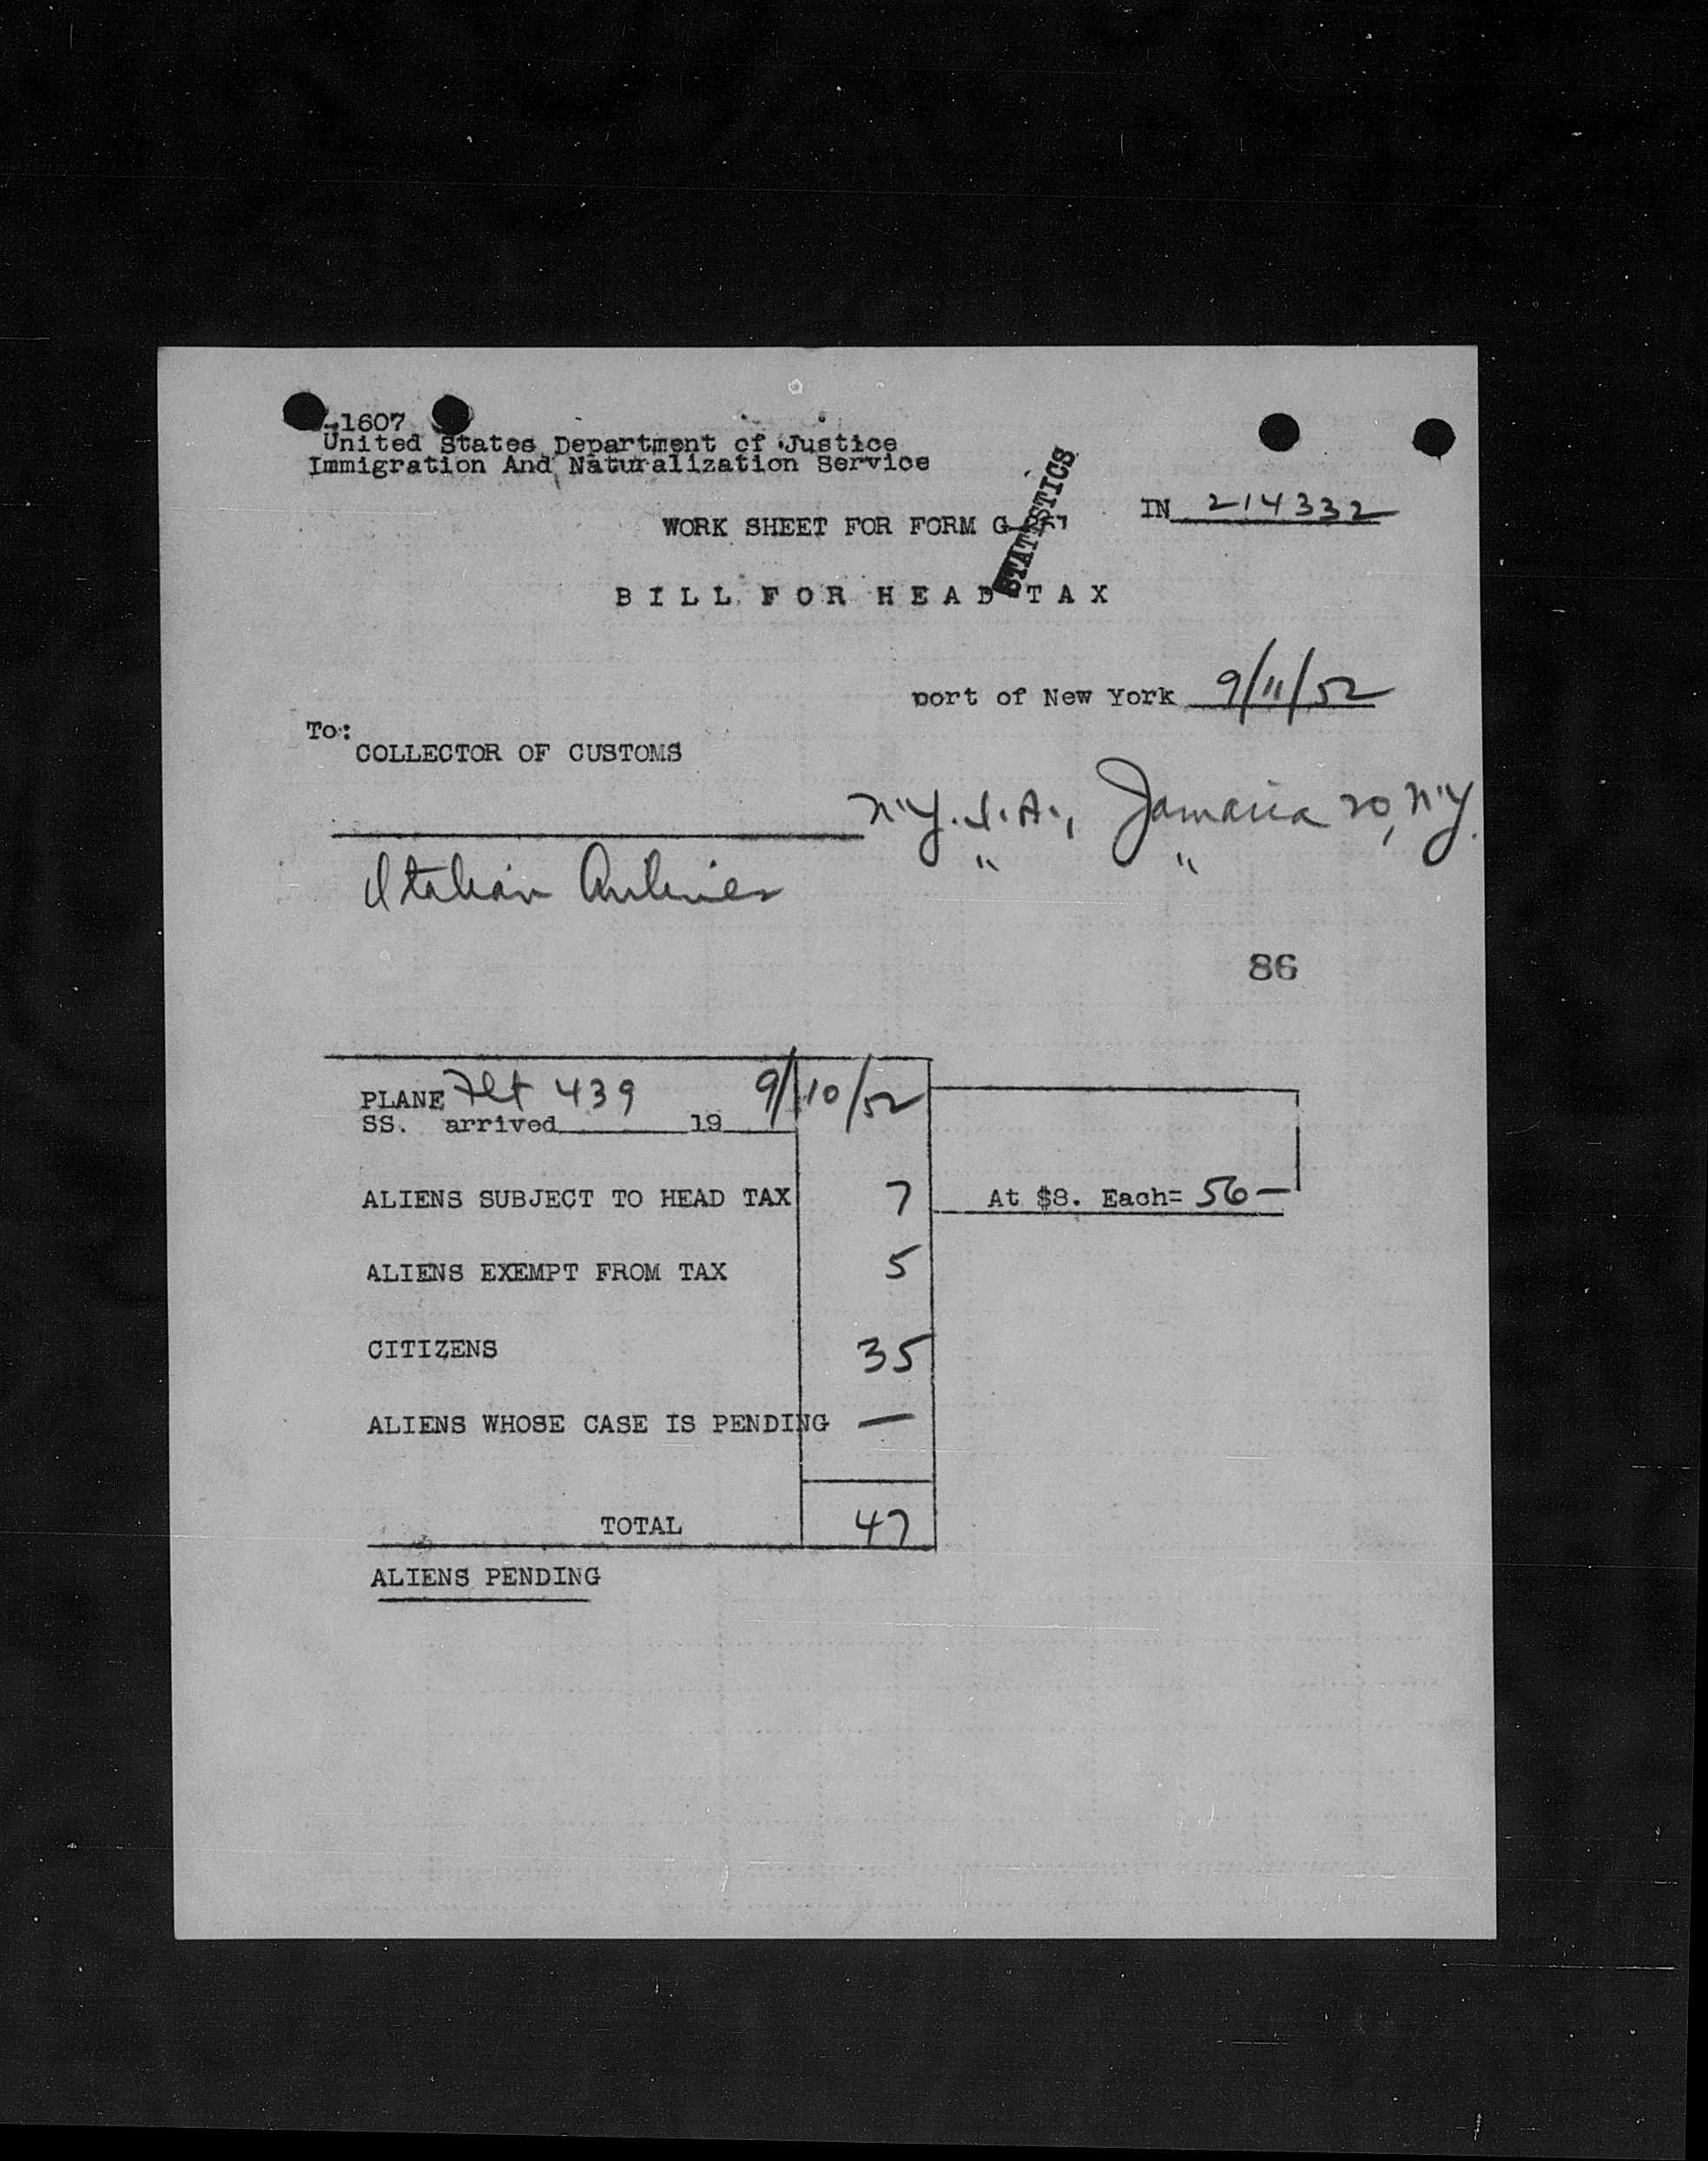 -1607
United States Department of Justice
Immigration And Naturalization Service
STATISTICS
IN 214332
WORK SHEET FOR FORM G-
BILL FOR HEAD TAX
port of New York 9/11/52
To:
COLLECTOR OF CUSTOMS
N.Y.I.A., Jamaica 20, N.Y.
" "
Italian Airlines
86
PLANE Flt 439 9/10/52
SS. arrived 19
ALIENS SUBJECT TO HEAD TAX 7 At $8. Each= 56—
ALIENS EXEMPT FROM TAX 5
CITIZENS 35
ALIENS WHOSE CASE IS PENDING —
TOTAL 47
ALIENS PENDING